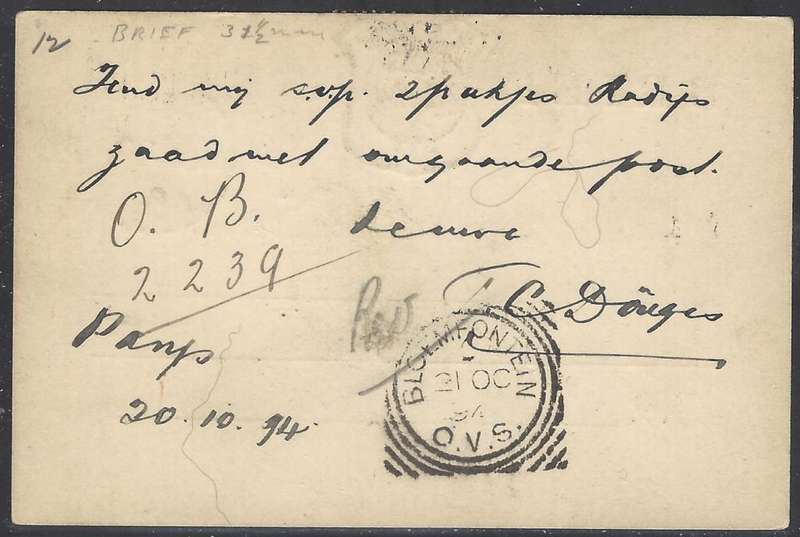 12 BRIEF 3 1/2 mm
Zend mij s.v.p. 2 pakjes Radijs
zaad met omgaande post.
O. B. de uwe
2239
C Dönges
Parys
20.10.94
BLOEMFONTEIN
21 OC
94
O.V.S.